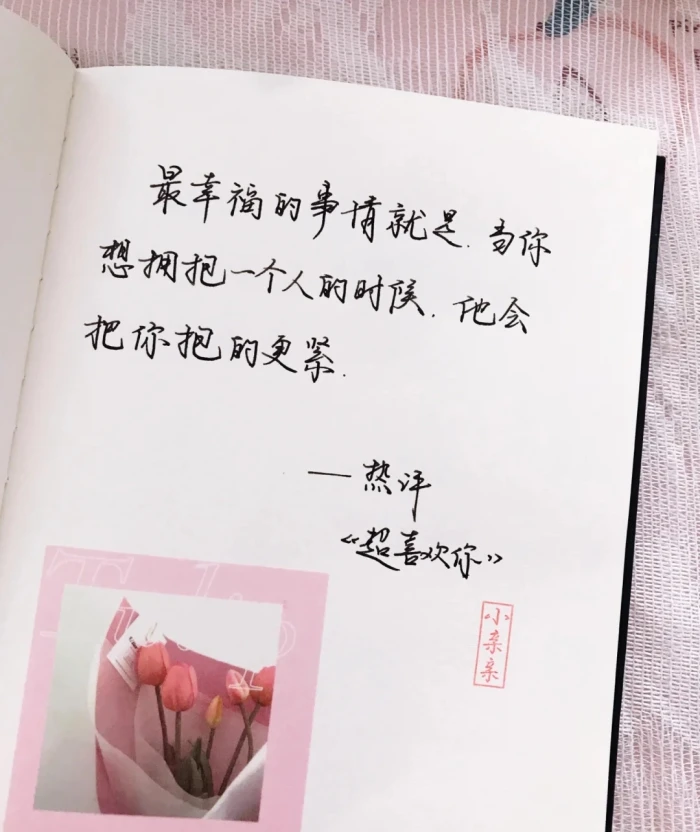 最幸福的事情就是.当你
想拥抱一个人的时候.他会
把你抱的更紧.
—热评
《超喜欢你》
小亲亲
Tulip